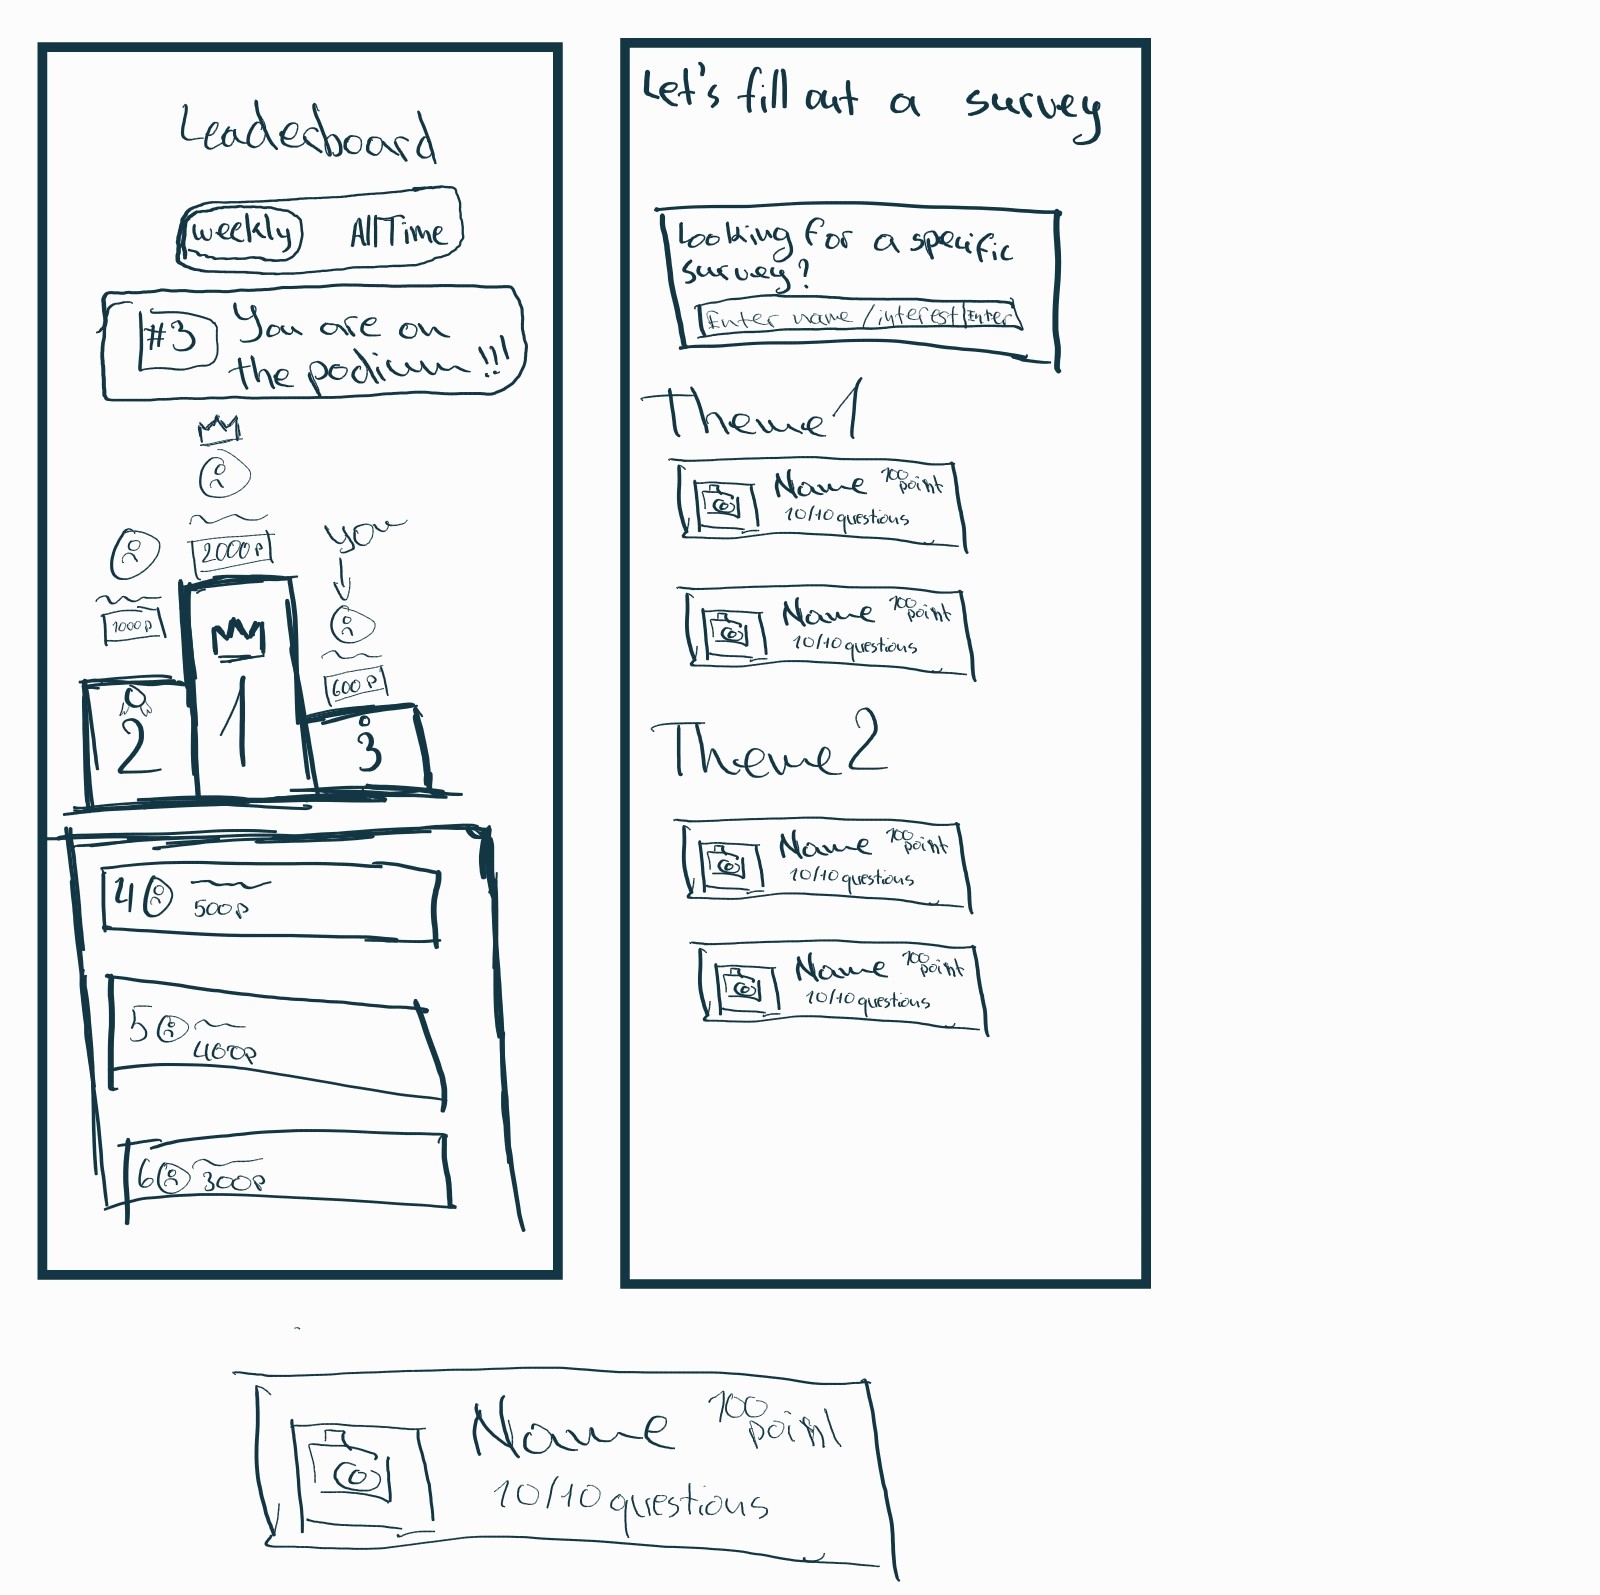 Leaderboard
weekly AllTime
#3 You are on
the podium!!!
2000P
you
1000P
600P
1
2
3
4
500P
5
400P
6 300P
Let's fill out a survey
Looking for a specific
survey?
Enter name/interest Enter
Theme 1
Name 100
point
10/10 questions
Name 100
point
10/10 questions
Theme 2
Name 100
point
10/10 questions
Name 100
point
10/10 questions
Name 100
point
10/10 questions